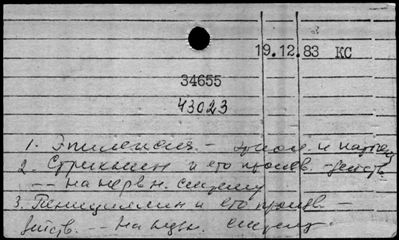 19.12.83 КС
34655
43023
1. Эпилепсия - этиол. и патоген.
2. Стрихнин и его произв. - действ.
-- на нервн. систему
3. Пенициллин и его произв. -
действ. -- на нервн. систему